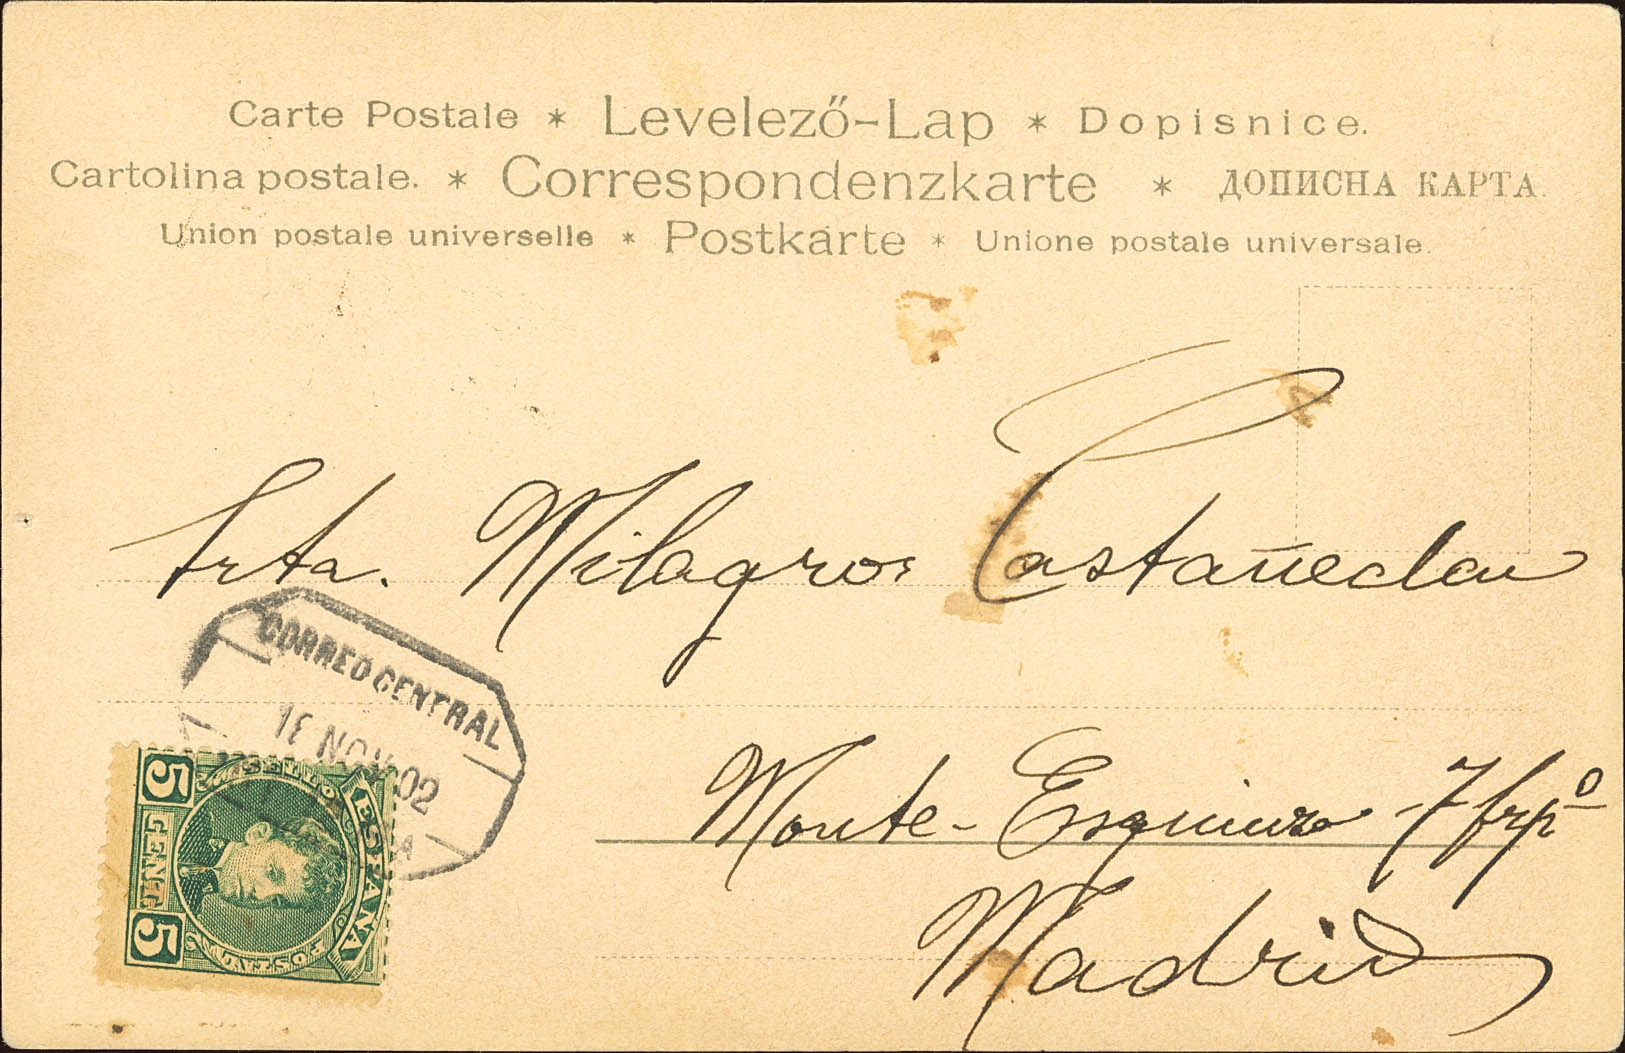 Carte Postale * Levelező-Lap * Dopisnice.
Cartolina postale. * Correspondenzkarte * ДОПИСНА КАРТА.
Union postale universelle * Postkarte * Unione postale universale.
Srta. Milagros Castañeda
CORREO CENTRAL
NOV 02
SELLO POSTAL
ESPAÑA
5 CENT 5
Monte-Esquinza 7
Madrid